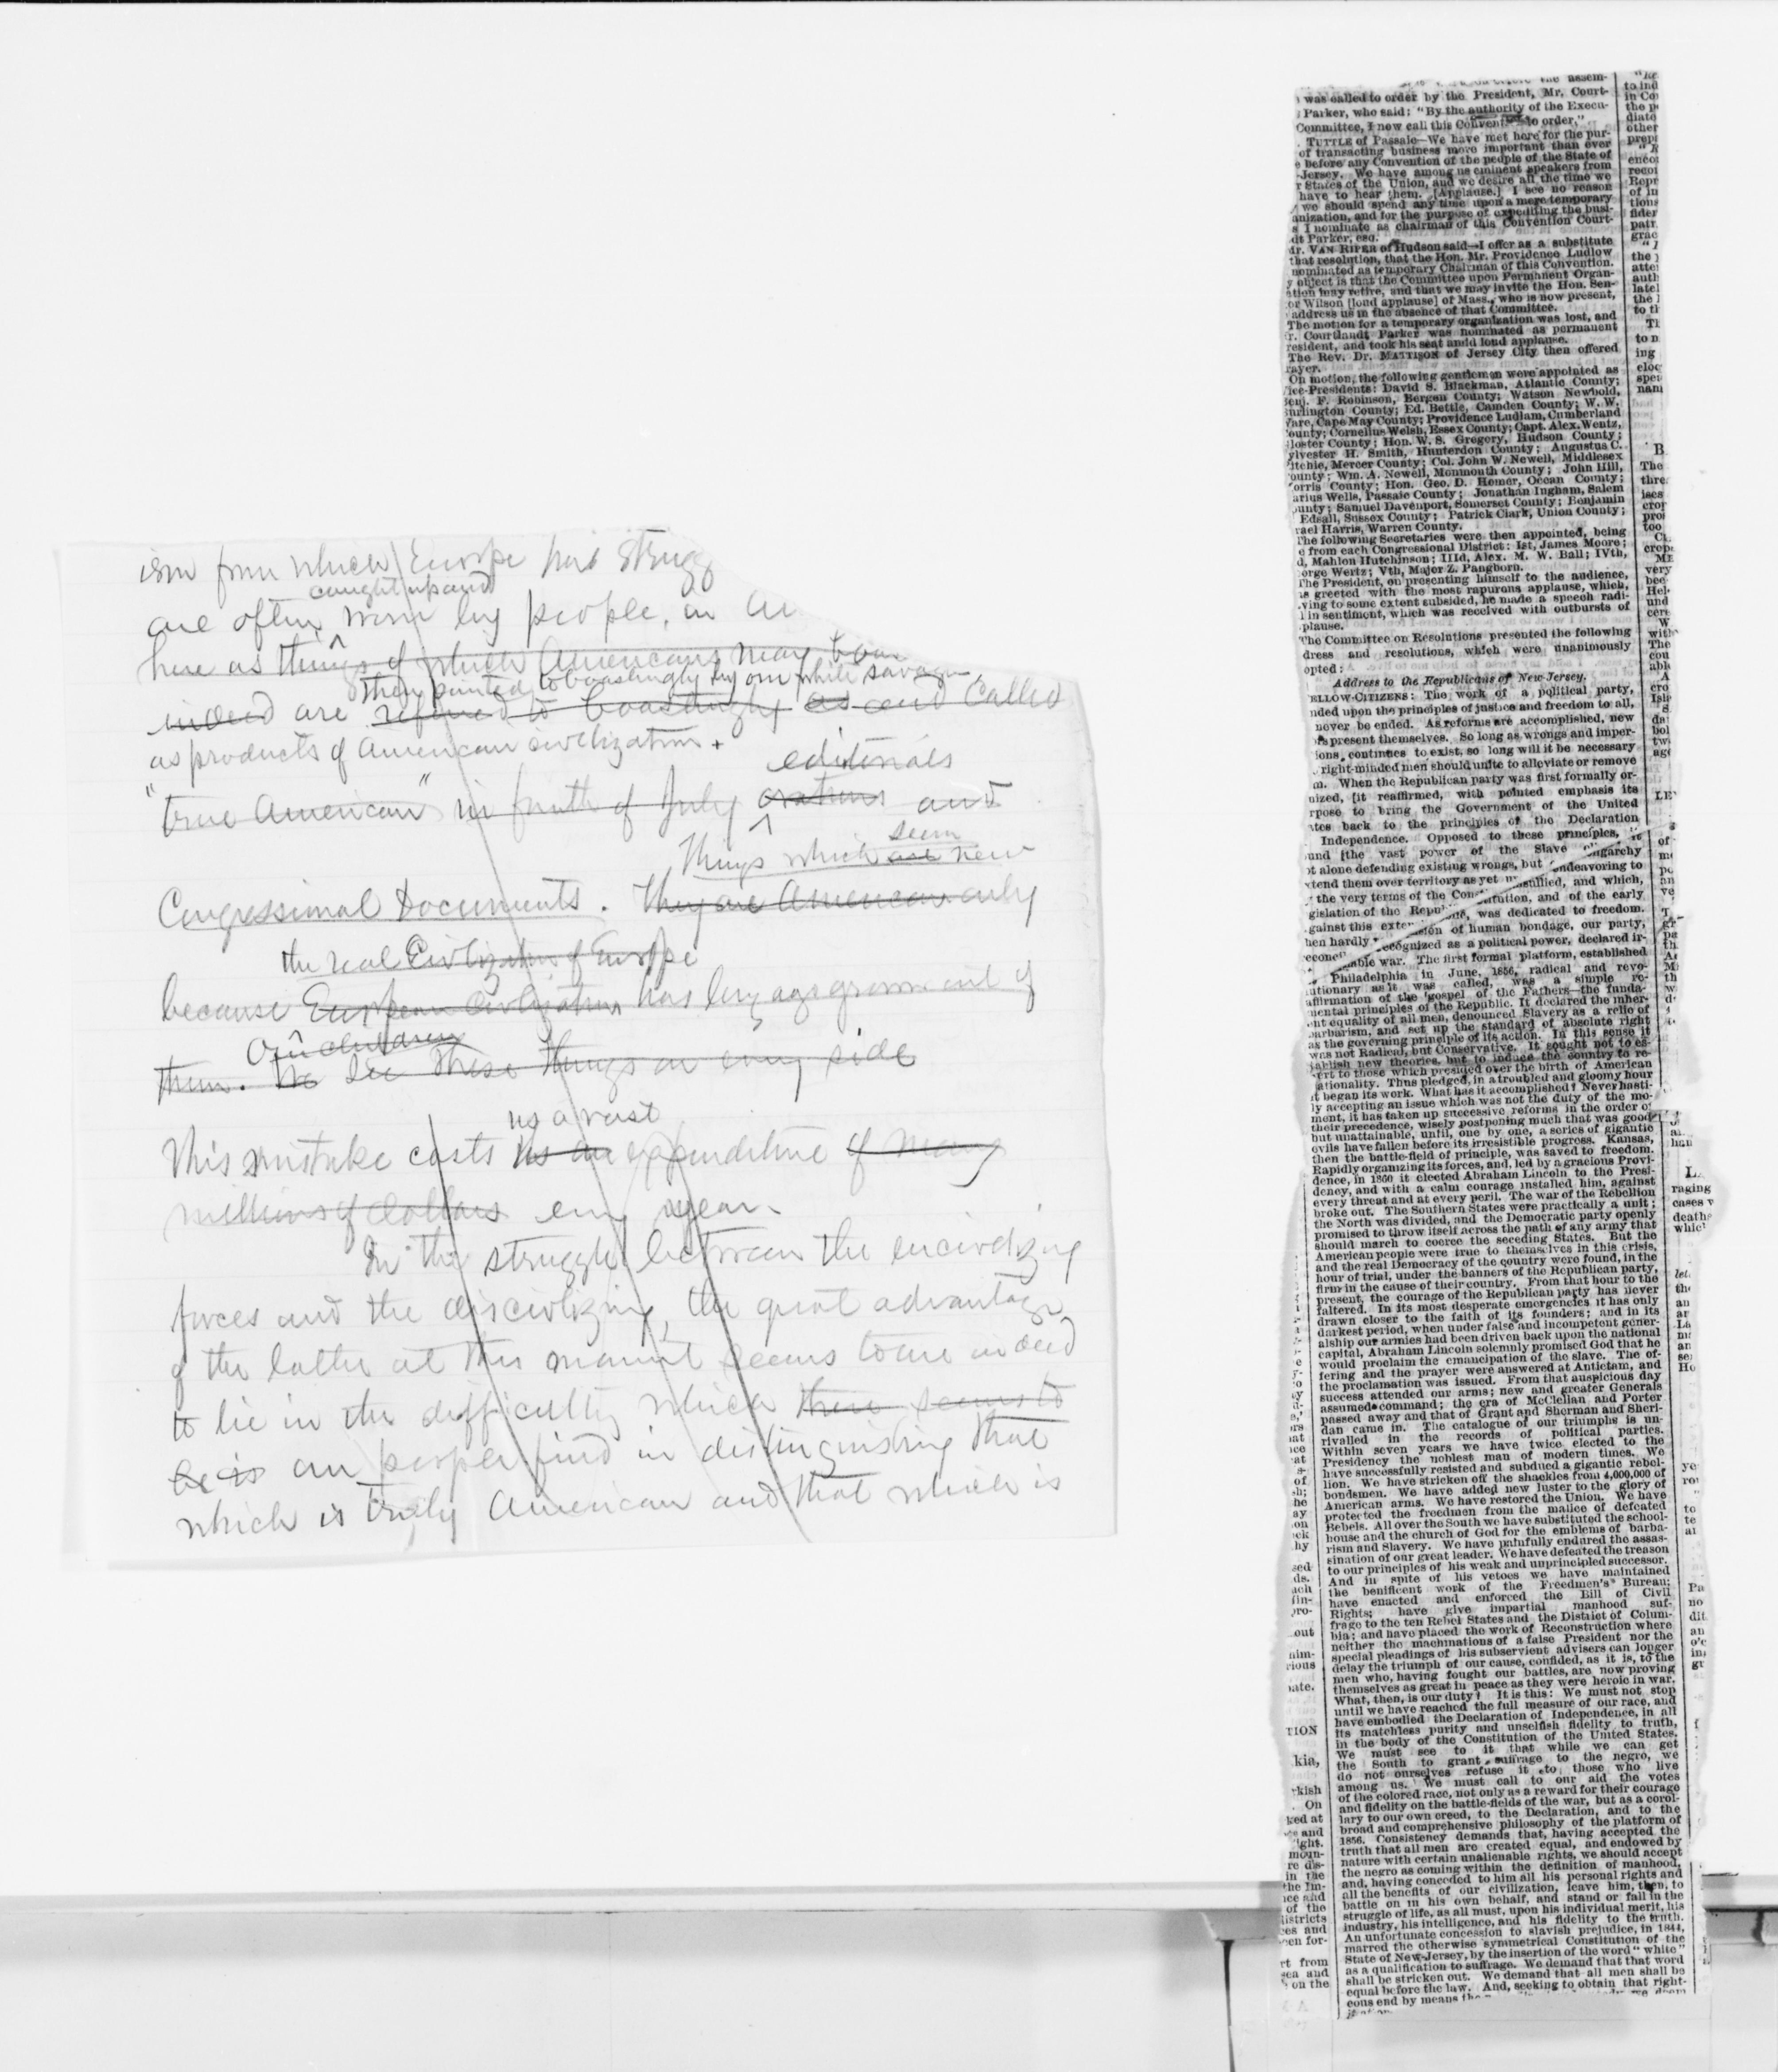 ism from which Europe has strugg
caught up and
are often worn by people, in
here as things of which Americans may boas
they pointed to boastingly by our white savages
indeed are referred to boastingly as and called
as products of American civilization.
editorials
"true American" in fourth of July orations and
Things which are seem new
Congressional Documents. They are American only
the real Civilization of Europe
because European Civilization has long ago grown out of
Our children
them. We see these things on every side
us a vast
This mistake costs us an expenditure of many
millions of dollars every year.
In the struggle between the encivilizing
forces and the discivilizing, the great advantage
of the latter at this moment seems to me indeed
to lie in the difficulty which there seems to
be is our people find in distinguishing that
which is truly American and that which is
was called to order by the President, Mr. Court-
Parker, who said: "By the authority of the Execu-
Committee, I now call this Convention to order."
TUTTLE of Passaic—We have met here for the pur-
of transacting business more important than ever
before any Convention of the people of the State of
Jersey. We have among us eminent speakers from
States of the Union, and we desire all the time we
have to hear them. [Applause.] I see no reason
we should spend any time upon a mere temporary
anization, and for the purpose of expediting the busi-
s I nominate as chairman of this Convention Court-
dt Parker, esq.
Mr. VAN RIPER of Hudson said—I offer as a substitute
that resolution, that the Hon. Mr. Providence Ludlow
nominated as temporary Chairman of this Convention.
y object is that the Committee upon Permanent Organ-
ation may retire, and that we may invite the Hon. Sen-
or Wilson [loud applause] of Mass., who is now present,
address us in the absence of that Committee.
The motion for a temporary organization was lost, and
r. Courtlandt Parker was nominated as permanent
resident, and took his seat amid loud applause.
The Rev. Dr. MATTISON of Jersey City then offered
rayer.
On motion, the following gentlemen were appointed as
ice-Presidents: David S. Blackman, Atlantic County;
enj. F. Robinson, Bergen County; Watson Newbold,
urlington County; Ed. Bettle, Camden County; W. W.
are, Cape May County; Providence Ludlam, Cumberland
ounty; Cornelius Welsh, Essex County; Capt. Alex. Wentz,
loster County; Hon. W. S. Gregory, Hudson County;
ylvester H. Smith, Hunterdon County; Augustus C.
itchie, Mercer County; Col. John W. Newell, Middlesex
ounty; Wm. A. Newell, Monmouth County; John Hill,
orris County; Hon. Geo. D. Homer, Ocean County;
arius Wells, Passaic County; Jonathan Ingham, Salem
ounty; Samuel Davenport, Somerset County; Benjamin
Edsall, Sussex County; Patrick Clark, Union County;
rael Harris, Warren County.
The following Secretaries were then appointed, being
e from each Congressional District: Ist, James Moore;
d, Mahlon Hutchinson; IIId, Alex. M. W. Ball; IVth,
orge Wertz; Vth, Major Z. Pangborn.
The President, on presenting himself to the audience,
s greeted with the most rapurous applause, which,
ving to some extent subsided, he made a speech radi-
l in sentiment, which was received with outbursts of
plause.
The Committee on Resolutions presented the following
dress and resolutions, which were unanimously
opted:
Address to the Republicans of New Jersey.
ELLOW-CITIZENS: The work of a political party,
nded upon the principles of justice and freedom to all,
never be ended. As reforms are accomplished, new
s present themselves. So long as wrongs and imper-
ions continues to exist, so long will it be necessary
right-minded men should unite to alleviate or remove
m. When the Republican party was first formally or-
nized, [it reaffirmed, with pointed emphasis its
rpose to bring the Government of the United
tes back to the principles of the Declaration
Independence. Opposed to these principles, it
und [the vast power of the Slave Oligarchy
ot alone defending existing wrongs, but endeavoring to
xtend them over territory as yet unsullied, and which,
the very terms of the Constitution, and of the early
gislation of the Republic, was dedicated to freedom.
gainst this extension of human bondage, our party,
hen hardly recognized as a political power, declared ir-
reconcilable war. The first formal platform, established
Philadelphia in June, 1856, radical and revo-
utionary as it was called, was a simple re-
affirmation of the gospel of the Fathers—the funda-
mental principles of the Republic. It declared the inher-
ent equality of all men, denounced Slavery as a relic of
barbarism, and set up the standard of absolute right
as the governing principle of its action. In this sense it
was not Radical, but Conservative. It sought not to es-
tablish new theories, but to induce the country to re-
vert to those which presided over the birth of American
nationality. Thus pledged, in a troubled and gloomy hour
it began its work. What has it accomplished? Never hasti-
ly accepting an issue which was not the duty of the mo-
ment, it has taken up successive reforms in the order of
their precedence, wisely postponing much that was good
but unattainable, until, one by one, a series of gigantic
evils have fallen before its irresistible progress. Kansas,
then the battle-field of principle, was saved to freedom.
Rapidly organizing its forces, and, led by a gracious Provi-
dence, in 1860 it elected Abraham Lincoln to the Presi-
dency, and with a calm courage installed him, against
every threat and at every peril. The war of the Rebellion
broke out. The Southern States were practically a unit;
the North was divided, and the Democratic party openly
promised to throw itself across the path of any army that
should march to coerce the seceding States. But the
American people were true to themselves in this crisis,
and the real Democracy of the country were found, in the
hour of trial, under the banners of the Republican party,
firm in the cause of their country. From that hour to the
present, the courage of the Republican party has never
faltered. In its most desperate emergencies it has only
drawn closer to the faith of its founders; and in its
darkest period, when under false and incompetent gener-
alship our armies had been driven back upon the national
capital, Abraham Lincoln solemnly promised God that he
would proclaim the emancipation of the slave. The of-
fering and the prayer were answered at Antietam, and
the proclamation was issued. From that auspicious day
success attended our arms; new and greater Generals
assumed command; the era of McClellan and Porter
passed away and that of Grant and Sherman and Sheri-
dan came in. The catalogue of our triumphs is un-
rivalled in the records of political parties.
Within seven years we have twice elected to the
Presidency the noblest man of modern times. We
have successfully resisted and subdued a gigantic rebel-
lion. We have stricken off the shackles from 4,000,000 of
bondsmen. We have added new luster to the glory of
American arms. We have restored the Union. We have
protected the freedmen from the malice of defeated
Rebels. All over the South we have substituted the school-
house and the church of God for the emblems of barba-
rism and Slavery. We have painfully endured the assas-
sination of our great leader. We have defeated the treason
to our principles of his weak and unprincipled successor.
And in spite of his vetoes we have maintained
the benificent work of the Freedmen's Bureau;
have enacted and enforced the Bill of Civil
Rights; have give impartial manhood suf-
frage to the ten Rebel States and the District of Colum-
bia; and have placed the work of Reconstruction where
neither the machinations of a false President nor the
special pleadings of his subservient advisers can longer
delay the triumph of our cause, confided, as it is, to the
men who, having fought our battles, are now proving
themselves as great in peace as they were heroic in war.
What, then, is our duty? It is this: We must not stop
until we have reached the full measure of our race, and
have embodied the Declaration of Independence, in all
its matchless purity and unselfish fidelity to truth,
in the body of the Constitution of the United States.
We must see to it that while we can get
the South to grant suffrage to the negro, we
do not ourselves refuse it to those who live
among us. We must call to our aid the votes
of the colored race, not only as a reward for their courage
and fidelity on the battle-fields of the war, but as a corol-
lary to our own creed, to the Declaration, and to the
broad and comprehensive philosophy of the platform of
1856. Consistency demands that, having accepted the
truth that all men are created equal, and endowed by
nature with certain unalienable rights, we should accept
the negro as coming within the definition of manhood,
and, having conceded to him all his personal rights and
all the benefits of our civilization, leave him, then, to
battle on in his own behalf, and stand or fall in the
struggle of life, as all must, upon his individual merit, his
industry, his intelligence, and his fidelity to the truth.
An unfortunate concession to slavish prejudice, in 1844,
marred the otherwise symmetrical Constitution of the
State of New-Jersey, by the insertion of the word "white"
as a qualification to suffrage. We demand that that word
shall be stricken out. We demand that all men shall be
equal before the law. And, seeking to obtain that right-
eous end by means